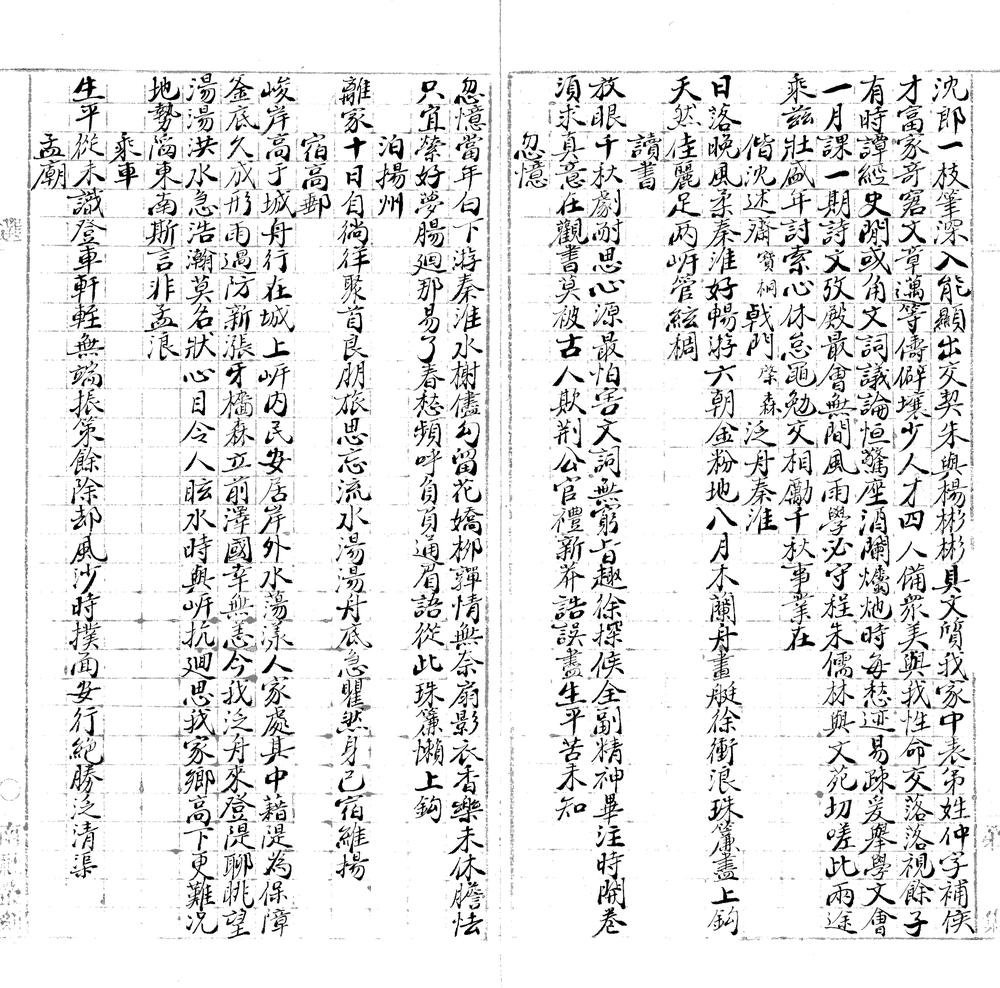 沈郎一枝筆深入能顯出交契朱與楊彬彬具文質我家中表弟姓仲字補侯
才富家奇窘文章邁等儔僻壤少人才四人備眾美與我性命交落落視餘子
有時譚經史閒或角文詞議論恒驚座酒闌爐灺時每愁迹易疎爰舉學文會
一月課一期詩文攷殿最會無間風雨學必守程朱儒林與文苑切嗟此兩途
乘茲壯盛年討索心休怠黽勉交相勵千秋事業在
偕沈述齋寶桐戟門榮森泛舟秦淮
日落晚風柔秦淮好暢游六朝金粉地八月木蘭舟畫艇徐衝浪珠簾盡上鈎
天然佳麗足兩岍管絃稠
讀書
放眼千秋劇耐思心源最怕害文詞無窮旨趣徐探候全副精神畢注時開卷
須求真意在觀書莫被古人欺荆公官禮新莽誥誤盡生平苦未知
忽憶
忽憶當年白下游秦淮水榭儘勾留花嬌柳嚲情無奈扇影衣香樂未休膽怯
只宜縈好夢腸廻那易了春愁頻呼負負通眉語從此珠簾懶上鈎
泊揚州
離家十日自徜徉聚首良朋旅思忘流水湯湯舟底急瞿然身已宿維揚
宿高郵
峻岸高于城舟行在城上岍內民安居岸外水蕩漾人家處其中藉湜為保障
釜底久成形雨過防新漲牙檣森立前澤國幸無恙今我泛舟來登湜聊眺望
湯湯洪水急浩瀚莫名狀心目令人眩水時與岍抗廻思我家鄉高下更難况
地勢陷東南斯言非孟浪
乘車
生平從未識登車軒輊無端振策餘除却風沙時撲面安行絕勝泛清渠
孟廟